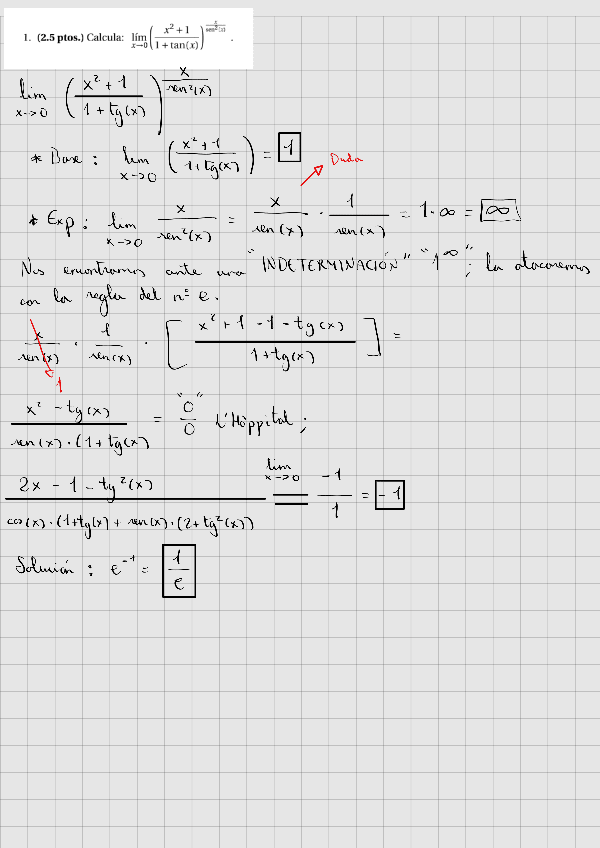 1. (2.5 ptos.) Calcula: lím x→0 ( (x²+1) / (1+tan(x)) )^( x / sen²(x) ) .
lim x→0 ( (x² + 1) / (1 + tg(x)) )^( x / sen²(x) )
* Base : lim x→0 ( (x²+1) / (1+tg(x)) ) = 1
Duda
* Exp : lim x→0 x / sen²(x) = x / sen(x) · 1 / sen(x) = 1·∞ = ∞
Nos encontramos ante una "INDETERMINACIÓN" "1^∞"; la atacaremos
con la regla del nº e.
x / sen(x) · 1 / sen(x) · [ (x² + 1 - 1 - tg(x)) / (1+tg(x)) ] =
1
(x² - tg(x)) / (sen(x)·(1+tg(x)) = "0/0" L'Hôppital ;
(2x - 1 - tg²(x)) / (cos(x)·(1+tg(x) + sen(x)·(2+tg²(x))) lim x→0 = -1 / 1 = -1
Solución : e^-1 = 1 / e